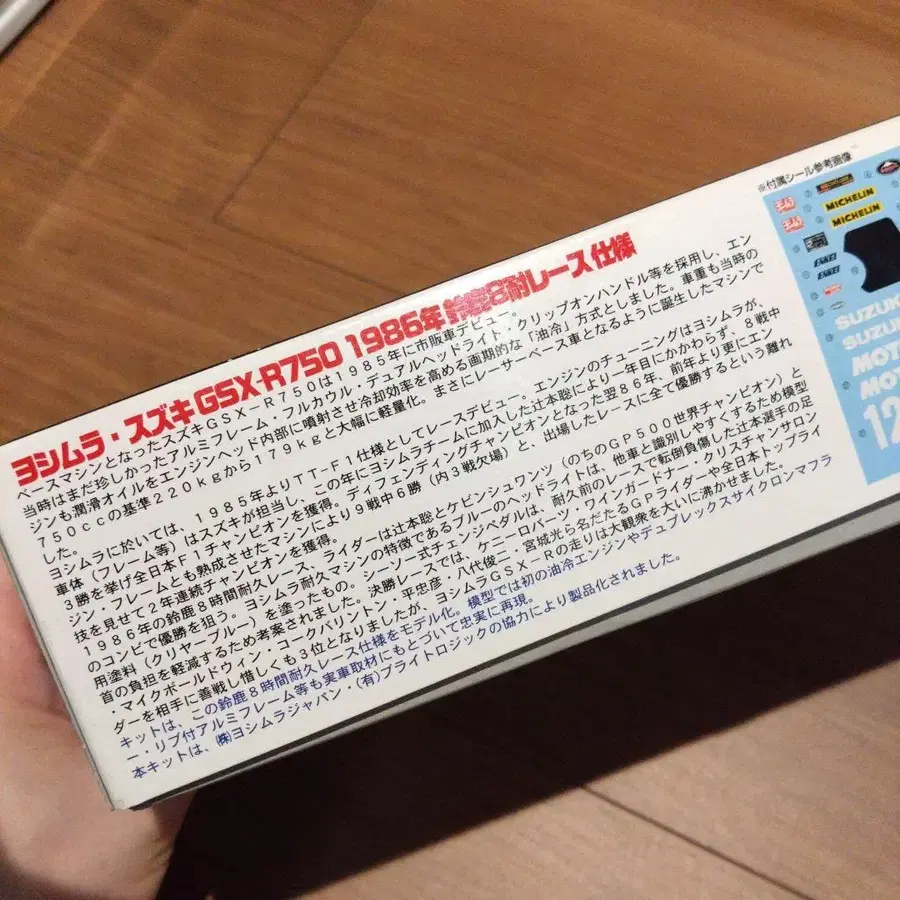 ヨシムラ・スズキGSX-R750 1986年 鈴鹿8耐レース仕様
ベースマシンとなったスズキGSX-R750は1985年に市販車デビュー。
当時はまだ珍しかったアルミフレーム・フルカウル・デュアルヘッドライト・クリップオンハンドル等を採用し、エン
ジンも潤滑オイルをエンジンヘッド内部に噴射させ冷却効率を高める画期的な「油冷」方式としました。車重も当時の
750ccの基準220kgから179kgと大幅に軽量化。まさにレーサーベース車となるように誕生したマシンで
した。
ヨシムラに於いては、1985年よりTT-F1仕様としてレースデビュー。エンジンのチューニングはヨシムラが、
車体(フレーム等)はスズキが担当し、この年にヨシムラチームに加入した辻本聡により一年目にかかわらず、8戦中
3勝を挙げ全日本F1チャンピオンを獲得。ディフェンディングチャンピオンとなった翌86年、前年より更にエン
ジン・フレームとも熟成させたマシンにより9戦中6勝(内3戦欠場)と、出場したレースに全て優勝するという離れ
技を見せて2年連続チャンピオンを獲得。
1986年の鈴鹿8時間耐久レース、ライダーは辻本聡とケビンシュワンツ(のちのGP500世界チャンピオン)と
のコンビで優勝を狙う。ヨシムラ耐久マシンの特徴であるブルーのヘッドライトは、他車と識別しやすくするため模型
用塗料(クリヤーブルー)を塗ったもの。シーソー式チェンジペダルは、耐久前のレースで転倒負傷した辻本選手の足
首の負担を軽減するため考案されました。決勝レースでは、ケニーロバーツ・ワインガードナー・クリスチャンサロン
・マイクボールドウィン・コークバリントン・平忠彦・八代俊二・宮城光ら名だたるGPライダーや全日本トップライ
ダーを相手に善戦し惜しくも3位となりましたが、ヨシムラGSX-Rの走りは大観衆を大いに沸かせました。
キットは、この鈴鹿8時間耐久レース仕様をモデル化。模型では初の油冷エンジンやデュプレックスサイクロンマフラ
ー・リブ付アルミフレーム等も実車取材にもとづいて忠実に再現。
本キットは、㈱ヨシムラジャパン・(有)ブライトロジックの協力により製品化されました。
※付属シール参考画像
MICHELIN
MICHELIN
ENKEI
ENKEI
SUZUK
SUZUK
MOT
MOT
12